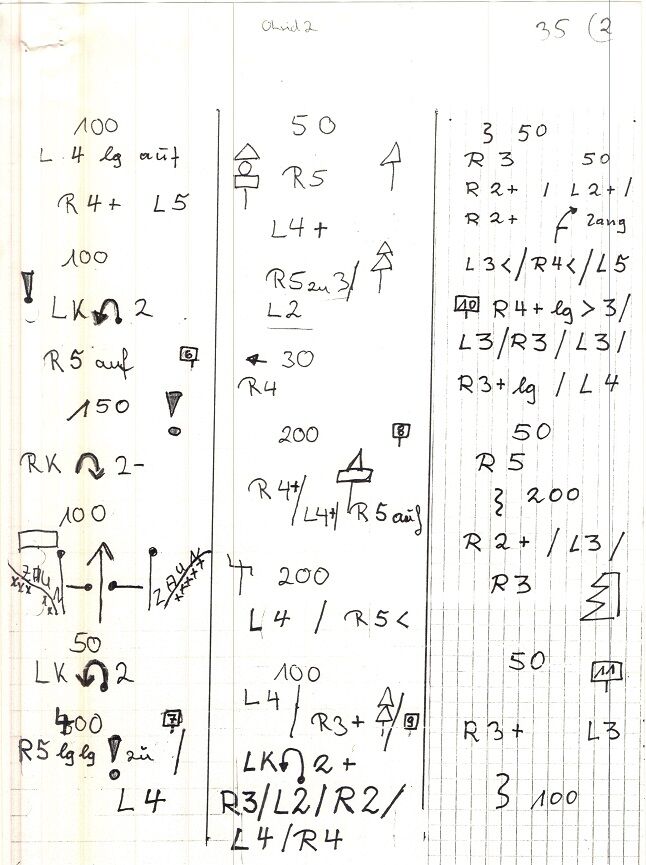 35 (2
100
L 4 lg auf
R4+ L5
100
! LK 2
R5 auf 6
150 !
RK 2-
100
ZAUN ZAUN
50
LK 2
400 7
R5 lglg ! zu /
L4
50
R5
L4+
R5 zu 3/
L2
30
R4
200 8
R4+/L4+/R5 auf
200
L4 / R5<
100
L4 / R3+ / 9
LK 2+
R3/L2/R2/
L4/R4
50
R3 50
R2+ / L2+/
R2+ zang
L3</R4</L5
10 R4+ lg > 3/
L3/R3/L3/
R3+ lg / L4
50
R5
200
R2+ / L3/
R3
50 11
R3+ L3
100